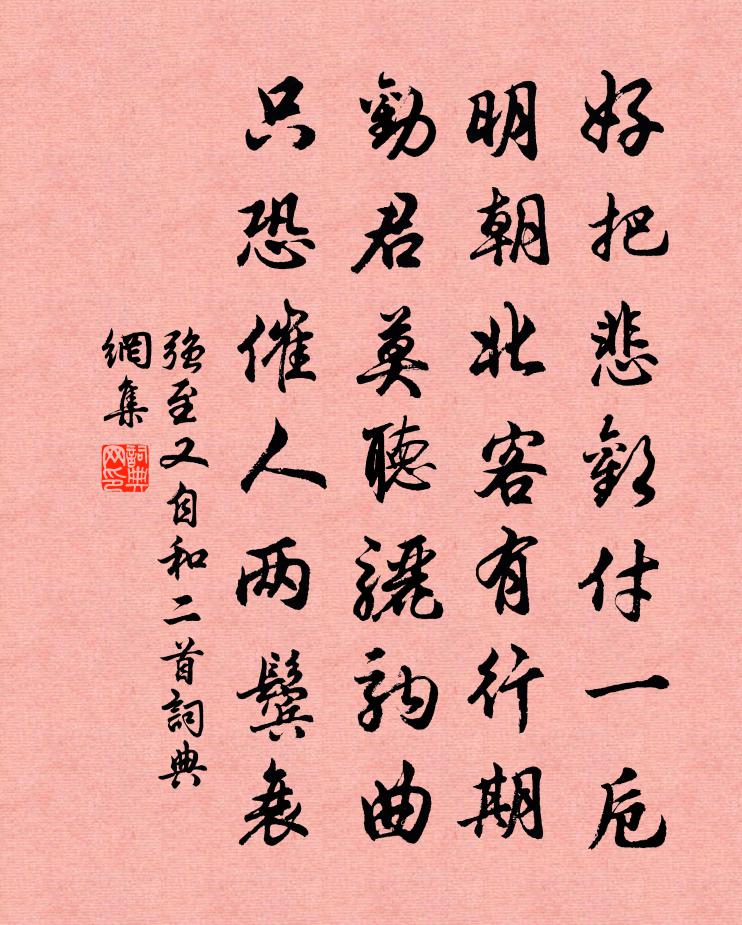 好把悲歡付一卮
明朝北客有行期
勸君莫聽驪駒曲
只恐催人两鬢衰
强至又自和二首詞典
網集
詞典
网印